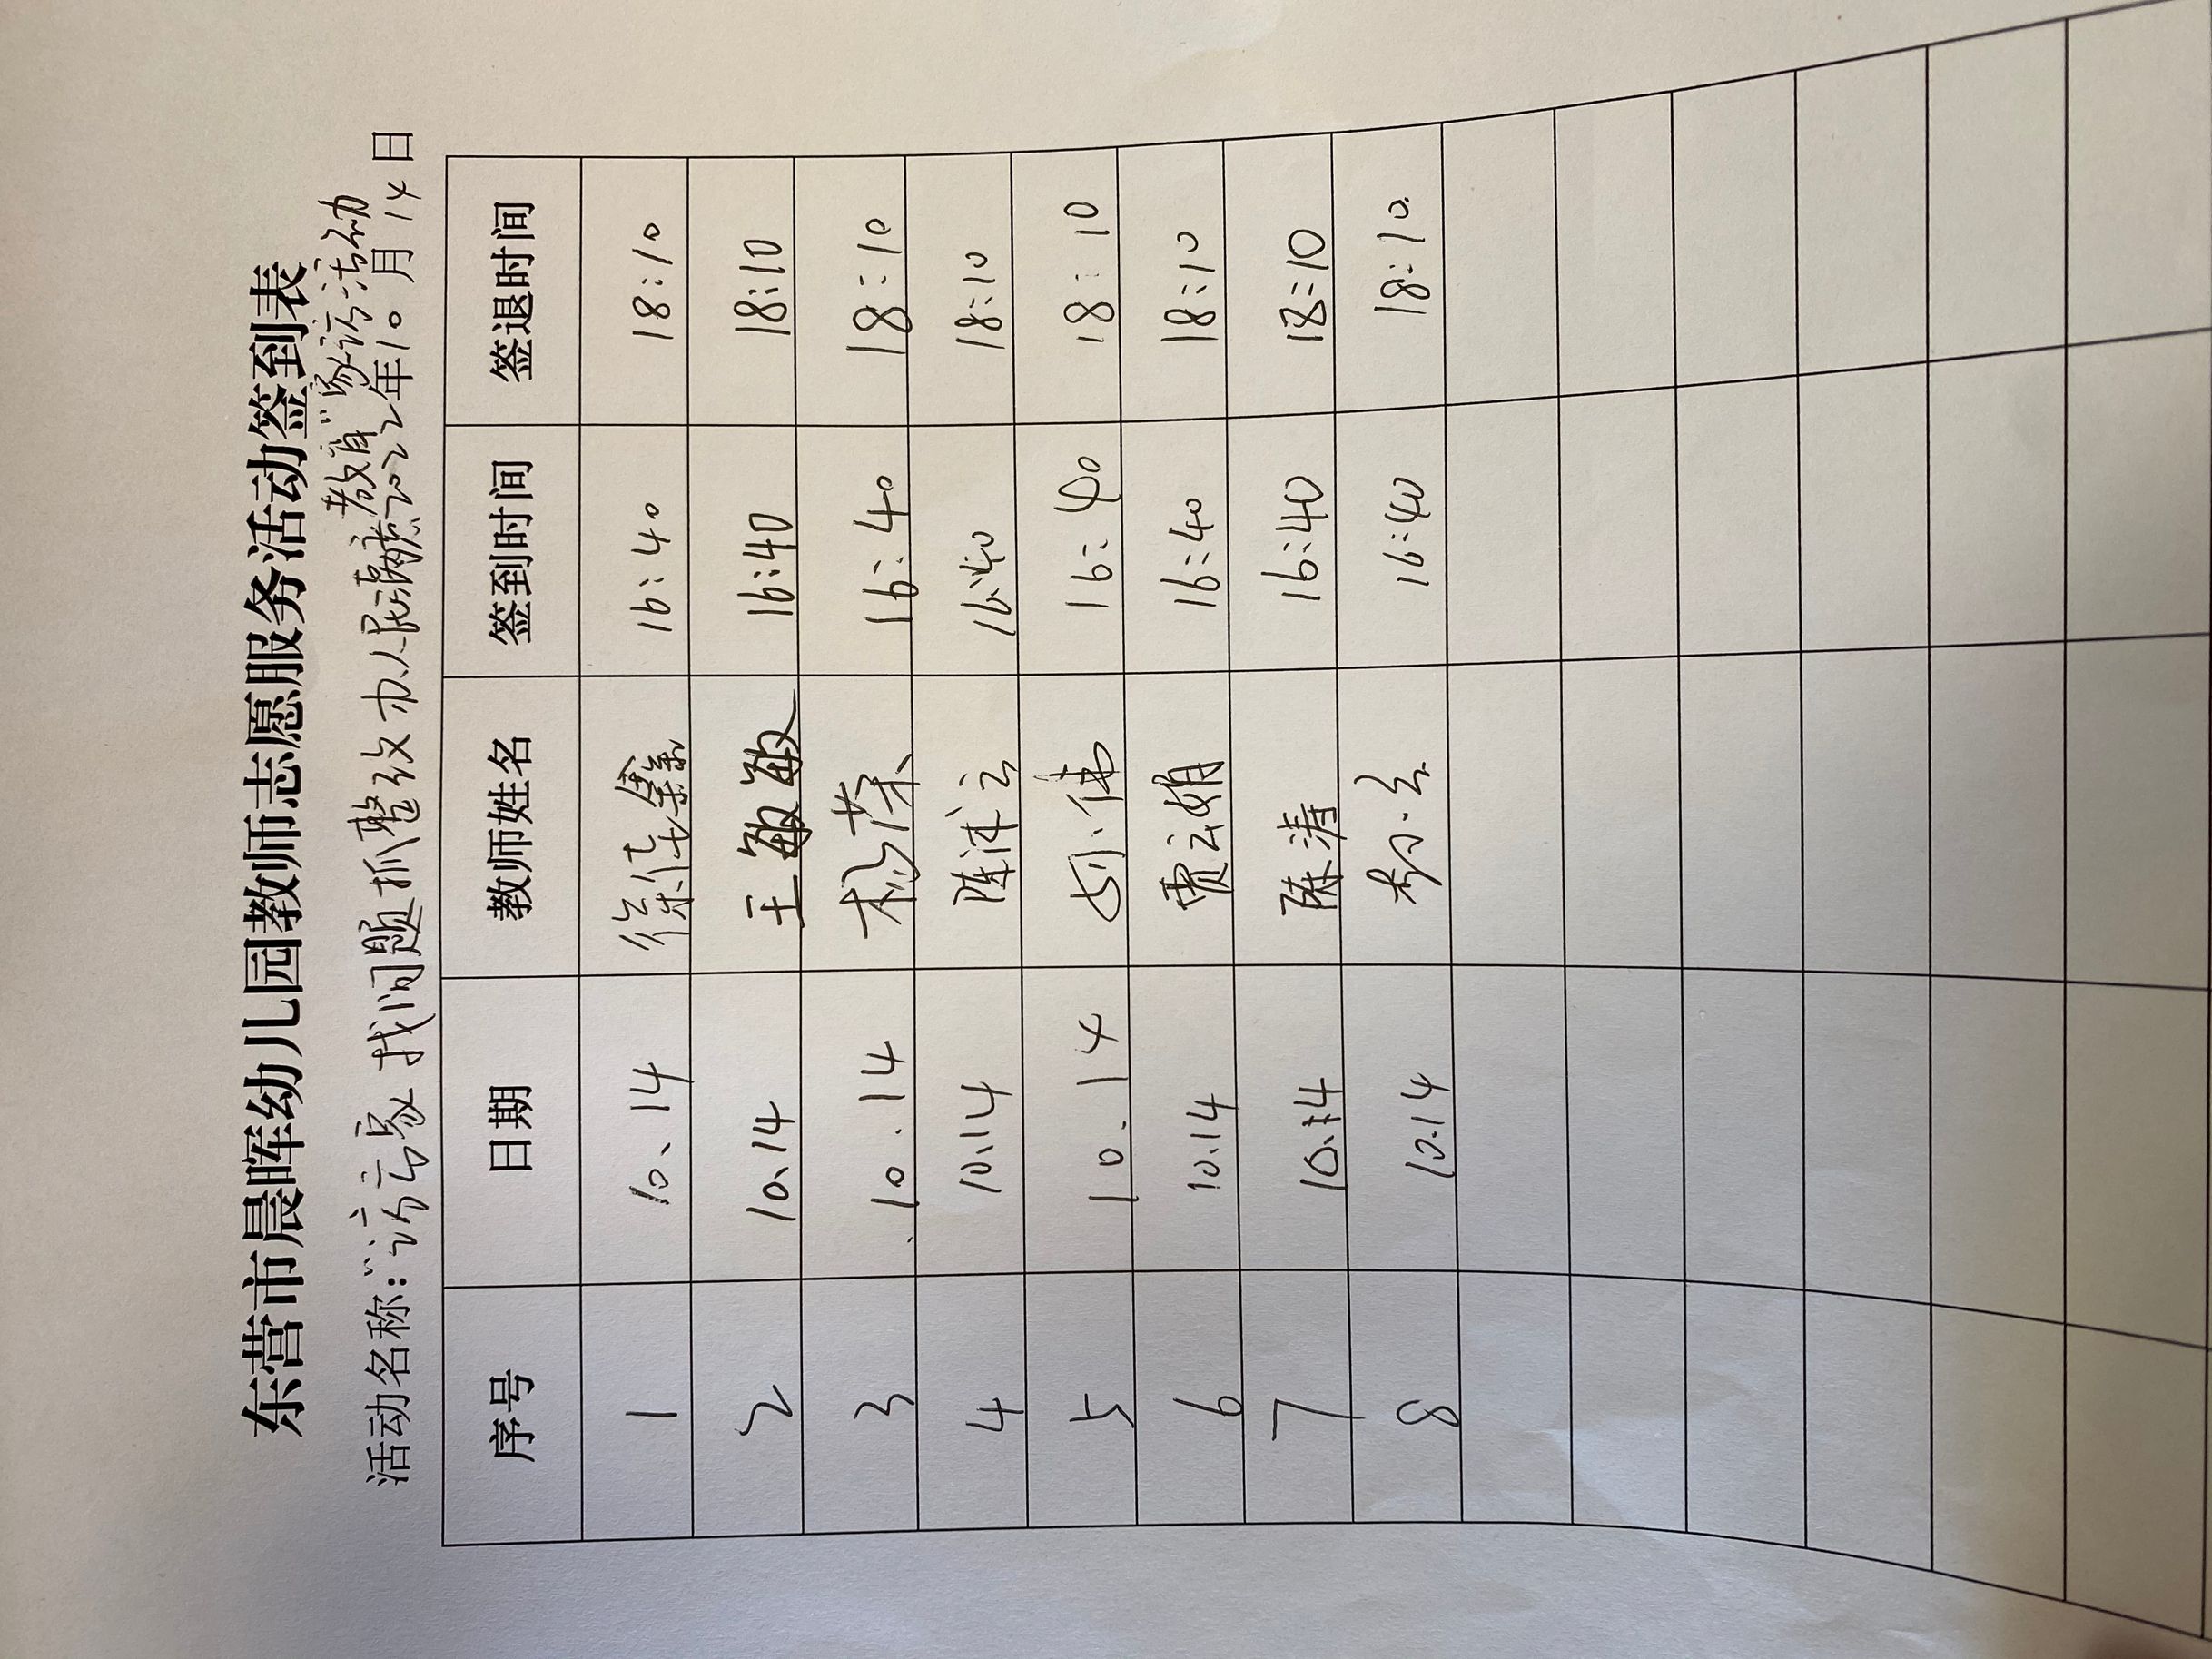 东营市晨晖幼儿园教师志愿服务活动签到表
活动名称:“访万家 找问题 抓整改 办人民满意教育”家访活动
2022年10月14日
序号 日期 教师姓名 签到时间 签退时间
1 10、14 徐佳鑫 16:40 18:10
2 10、14 王敏敏 16:40 18:10
3 10.14 杨荣 16:40 18:10
4 10.14 陈洪云 16:40 18:10
5 10.14 16:40 18:10
6 10.14 贾云娟 16:40 18:10
7 10.14 陈涛 16:40 18:10
8 10.14 16:40 18:10